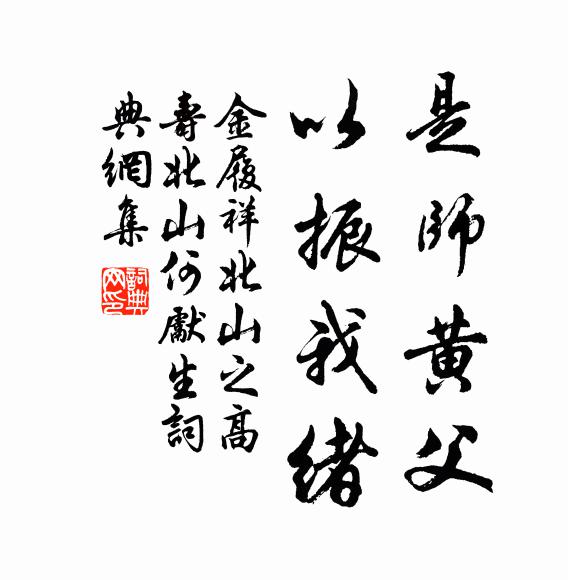 是師黃父
以振我緒
金履祥北山之高
壽北山何獻生詞
典網集
詞典網印